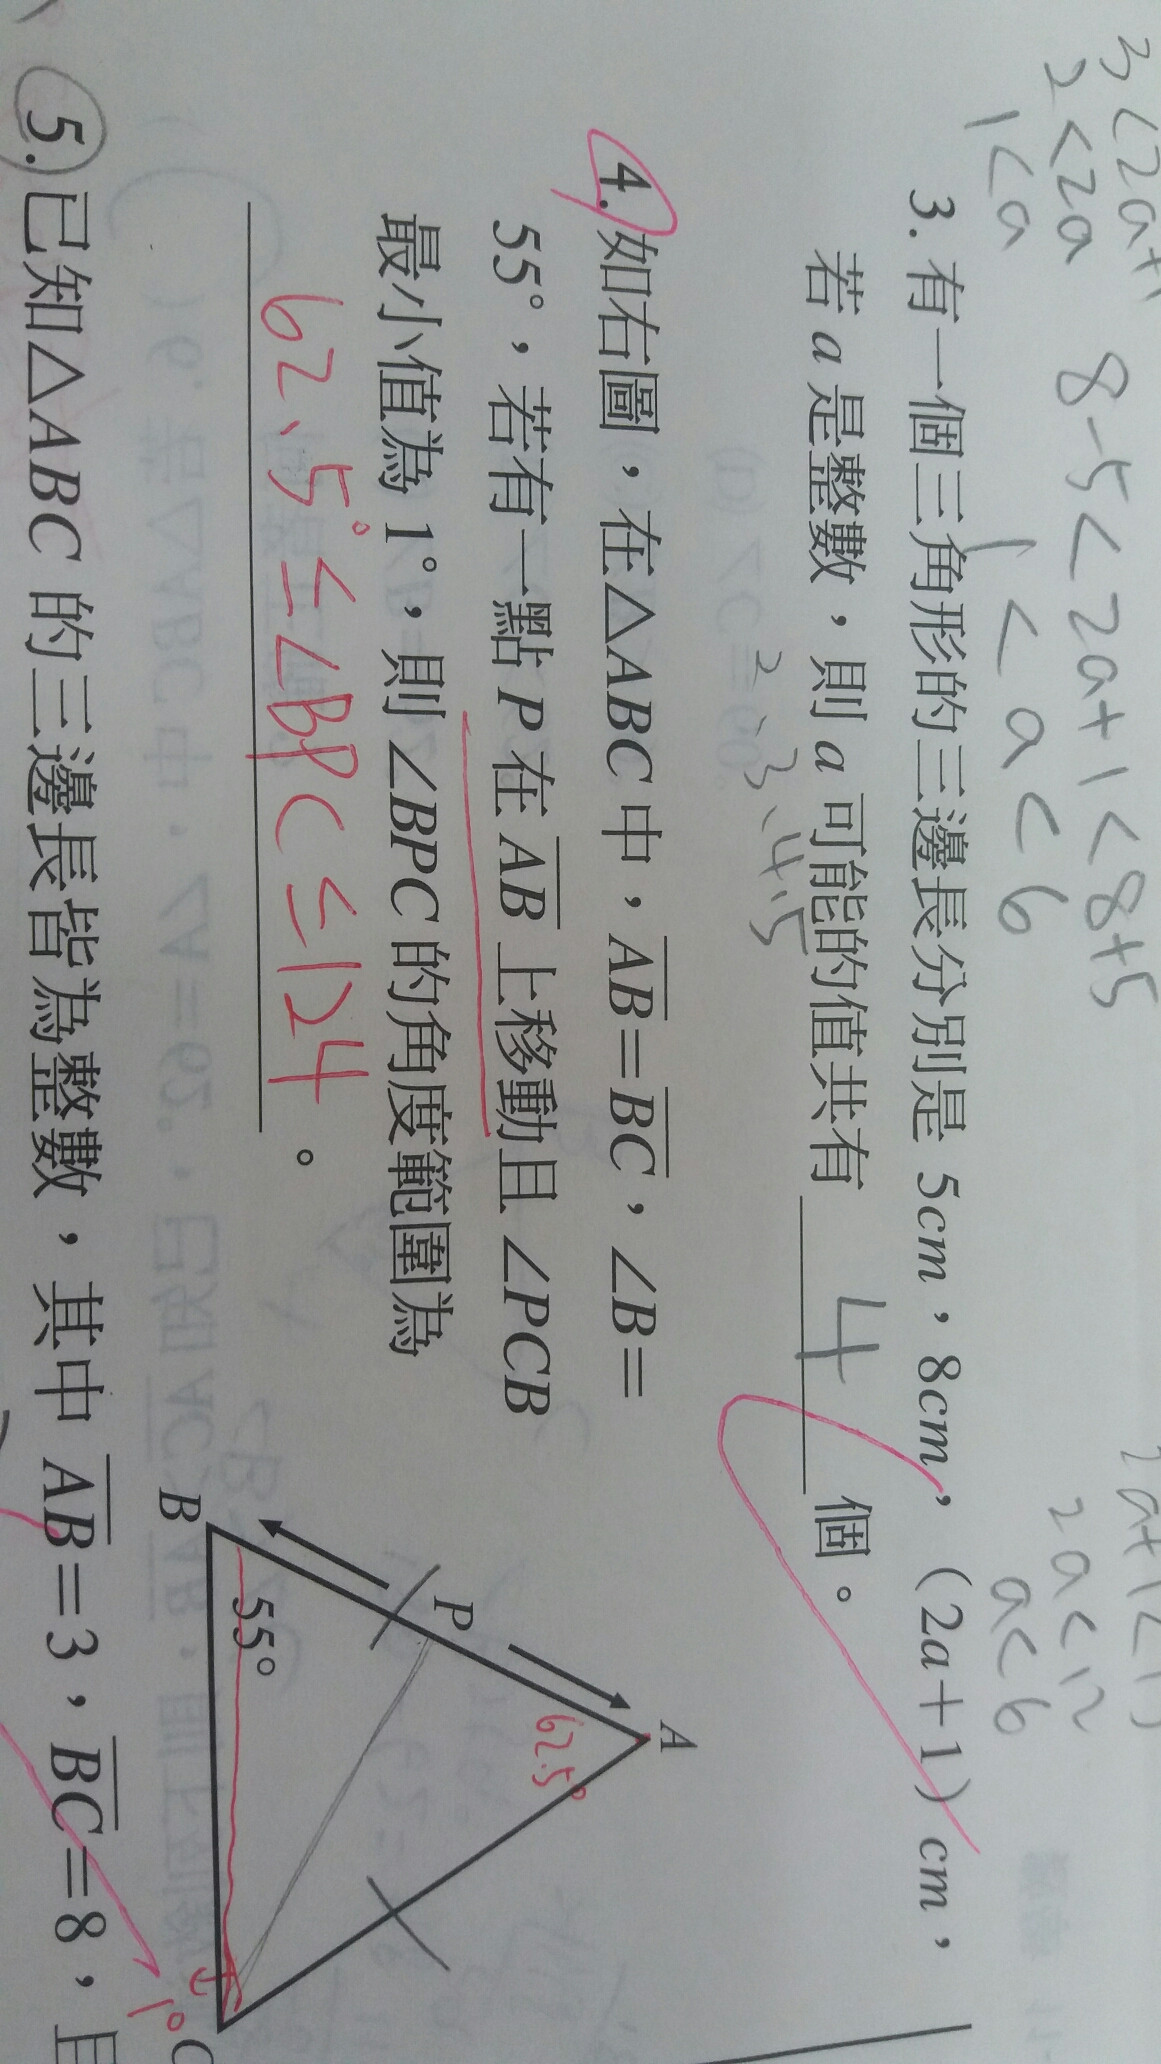 3<2a+1
2<2a
1<a
8-5<2a+1<8+5
1<a<6
2a<12
a<6
3. 有一個三角形的三邊長分別是 5cm，8cm，(2a+1)cm，
若 a 是整數，則 a 可能的值共有 4 個。
2、3、4、5
4. 如右圖，在△ABC 中，AB=BC，∠B=
55°，若有一點 P 在 AB 上移動且 ∠PCB
最小值為 1°，則 ∠BPC 的角度範圍為
62.5°≤∠BPC≤124 。
A
62.5°
P
B
55°
C
1°
5. 已知△ABC 的三邊長皆為整數，其中 AB=3，BC=8，且